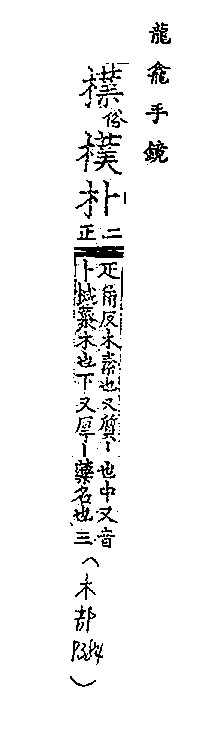 龍龕手鏡
檏俗樸朴二正
疋角反木素也又質〻也中又音
卜棫藂木也下又厚丨藥名也三
(木部
P384)